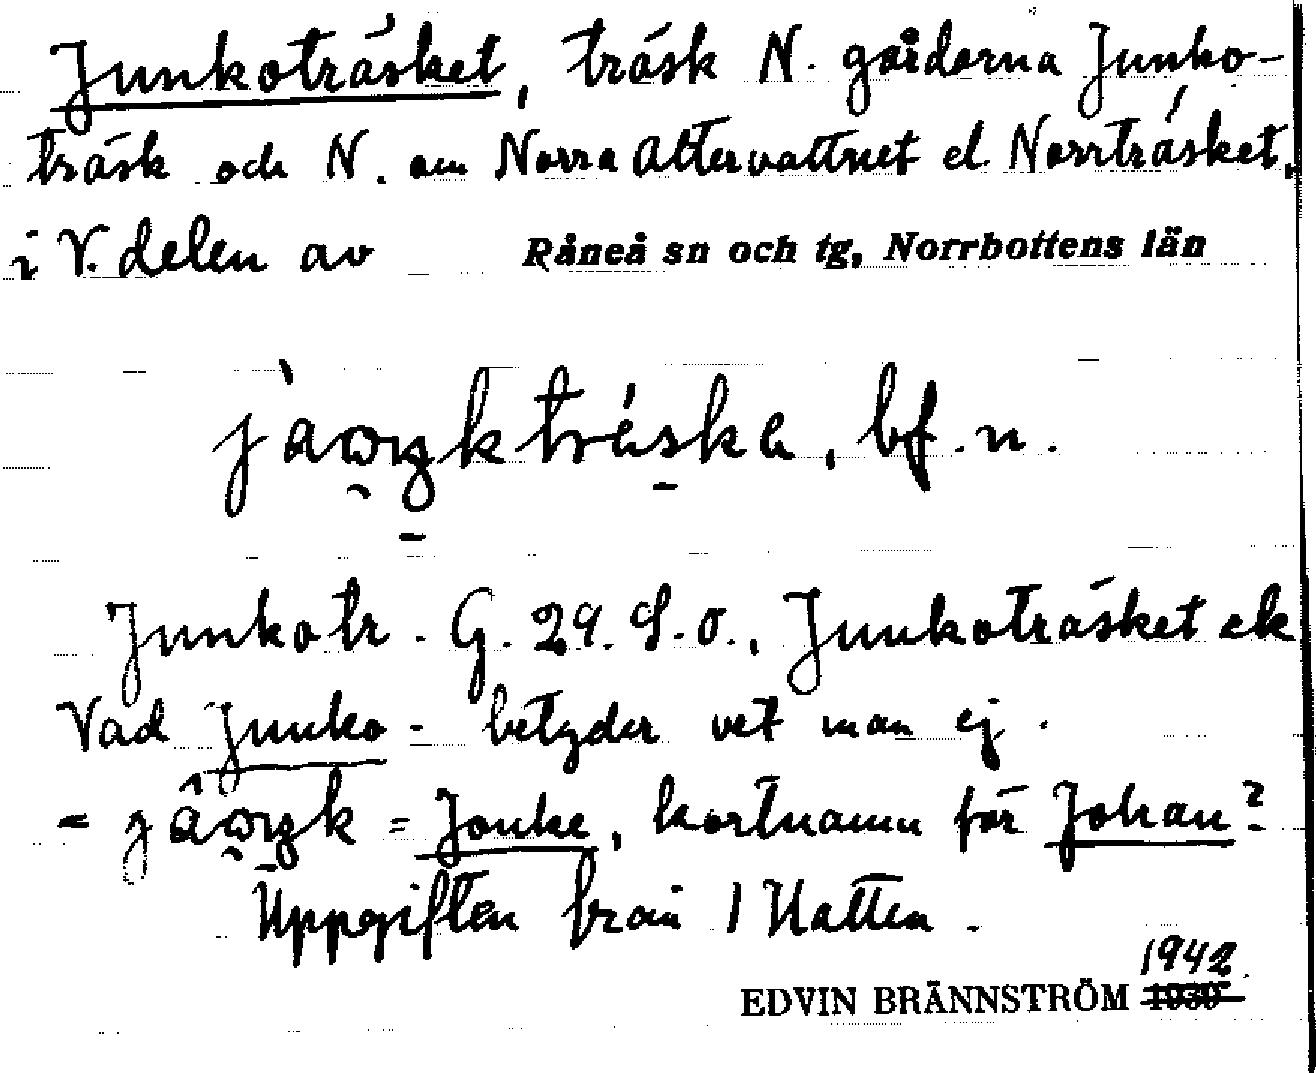 Junkoträsket, träsk N. gårdarna Junko-
träsk och N. om Norra Altervattnet el. Norrträsket,
i V. delen av Råneå sn och tg, Norrbottens län
bf. n.
Junkotr. G. 29. S.o., Junkoträsket ek
Vad Junko- betyder vet man ej.
= Jonke, kortnamn för Johan?
Uppgiften från
EDVIN BRÄNNSTRÖM 1942